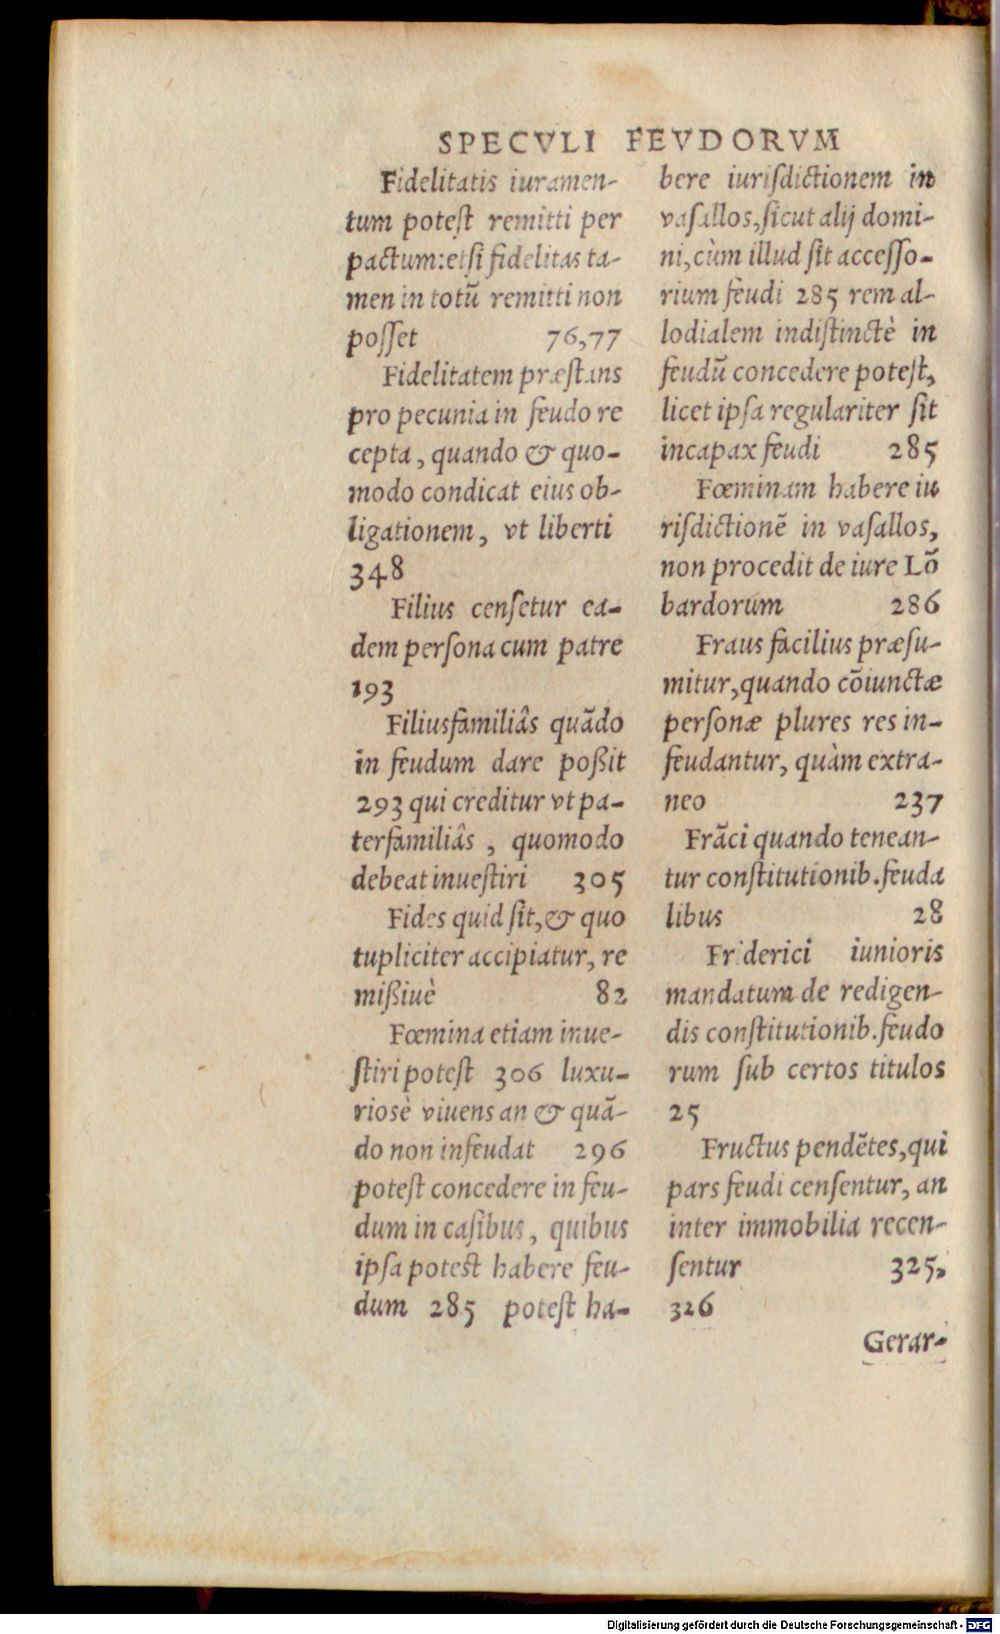 SPECVLI FEVDORVM
Fidelitatis iuramen-
tum poteſt remitti per
pactum: etſi fidelitas ta-
men in totũ remitti non
poſſet 76,77
Fidelitatem præſtans
pro pecunia in feudo re
cepta, quando & quo-
modo condicat eius ob-
ligationem, vt liberti
348
Filius cenſetur ea-
dem perſona cum patre
193
Filiusfamiliâs quãdo
in feudum dare poßit
293 qui creditur vt pa-
terfamiliâs, quomodo
debeat inueſtiri 305
Fides quid ſit, & quo
tupliciter accipiatur, re
mißiuè 82
Fœmina etiam inue-
ſtiri poteſt 306 luxu-
riosè viuens an & quã-
do non infeudat 296
poteſt concedere in feu-
dum in caſibus, quibus
ipſa potest habere feu-
dum 285 poteſt ha-
bere iuriſdictionem in
vaſallos, ſicut alij domi-
ni, cùm illud ſit acceſſo-
rium feudi 285 rem al-
lodialem indiſtinctè in
feudũ concedere poteſt,
licet ipſa regulariter ſit
incapax feudi 285
Fœminam habere iu
riſdictionẽ in vaſallos,
non procedit de iure Lõ
bardorum 286
Fraus facilius præſu-
mitur, quando cõiunctæ
perſonæ plures res in-
feudantur, quàm extra-
neo 237
Frãci quando tenean-
tur conſtitutionib. feuda
libus 28
Friderici iunioris
mandatum de redigen-
dis conſtitutionib. feudo
rum ſub certos titulos
25
Fructus pendẽtes, qui
pars feudi cenſentur, an
inter immobilia recen-
ſentur 325,
326
Gerar-
Digitalisierung gefördert durch die Deutsche Forschungsgemeinschaft - DFG